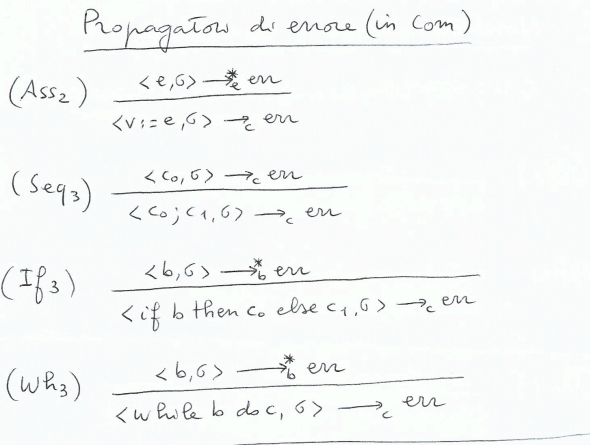 Propagatori di errore (in Com)
(Ass₂) <e,σ> →*ₑ err
<v:=e,σ> →c err
(Seq₃) <c₀,σ> →c err
<c₀;c₁,σ> →c err
(If₃) <b,σ> →*b err
<if b then c₀ else c₁,σ> →c err
(Wh₃) <b,σ> →*b err
<while b do c, σ> →c err